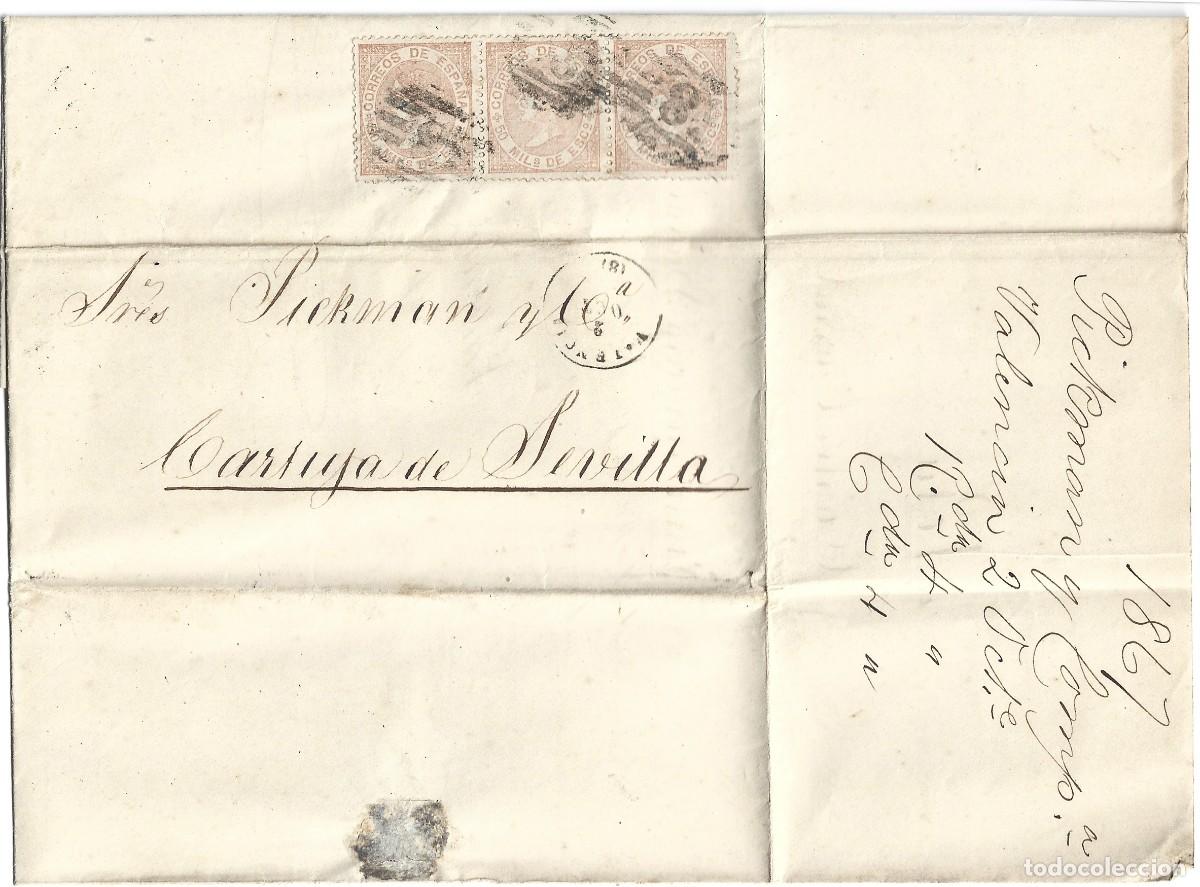 CORREOS DE ESPAÑA
MILs DE
CORREOS DE ESPA
50 MILs DE ESCs
CORREOS DE ESPA
MILs DE ESCs
(8)
2
VALENCIA
Sres Pickman y Ca
Cartuja de Sevilla
1867
Pickman y Comp.a
Valencia 2 Oct.e
R. da 4 "
C da 4 "
todocoleccion